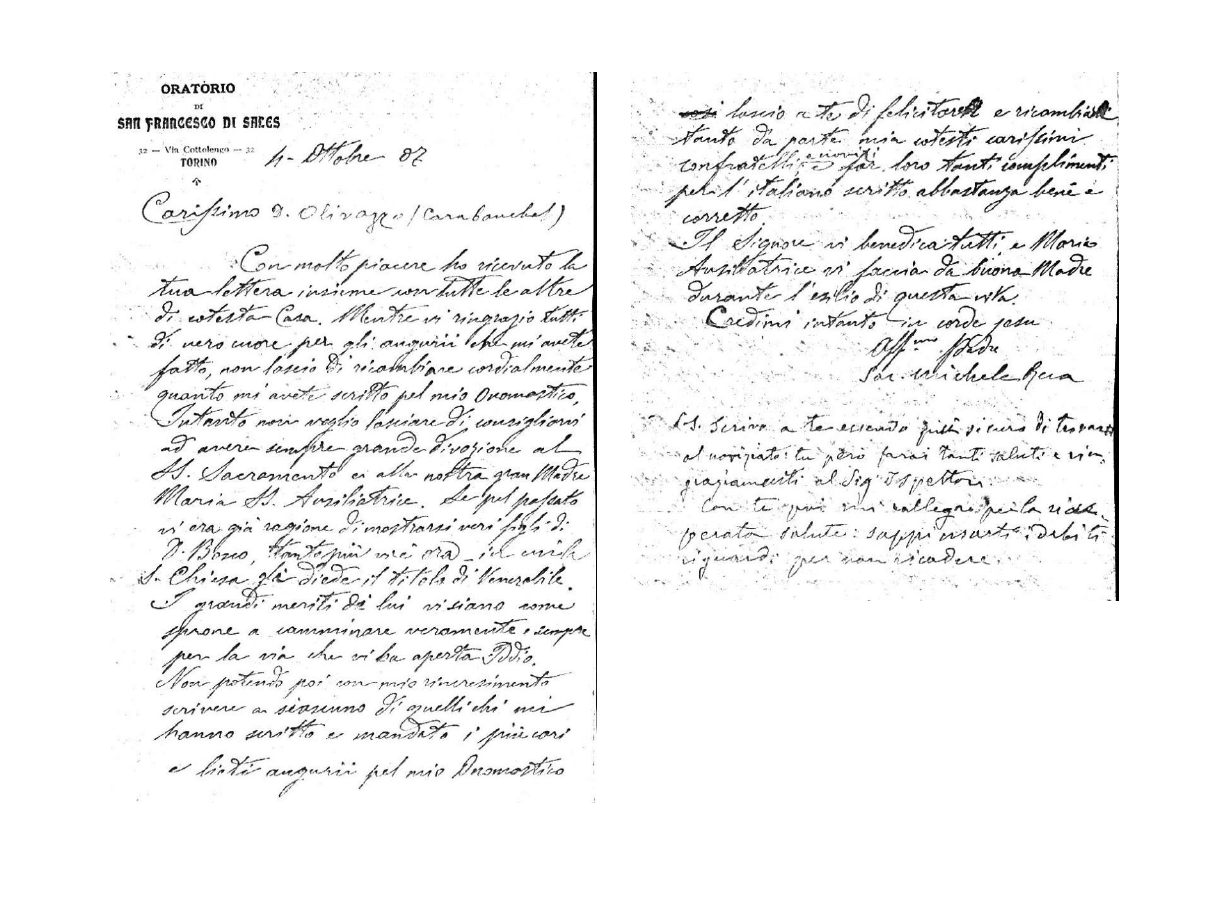 ORATORIO
DI
SAN FRANCESCO DI SALES
32 — Via Cottolengo — 32
TORINO
4- Ottobre 07
Carissimo D. Olivazzo (Carabanchel)
Con molto piacere ho ricevuto la
tua lettera insieme con tutte le altre
di cotesta Casa. Mentre vi ringrazio tutti
di vero cuore per gli augurii che mi avete
fatto, non lascio di ricambiare cordialmente
quanto mi avete scritto pel mio Onomastico,
Intanto non voglio lasciare di consigliarvi
ad avere sempre grande divozione al
SS. Sacramento e alla nostra gran Madre
Maria SS. Ausiliatrice. Se pel passato
vi era già ragione di mostrarsi veri figli di
D. Bosco, tanto più ora
S. Chiesa già diede il titolo di Venerabile
I grandi meriti di lui vi siano come
sprone a camminare veramente e sempre
per la via che vi ha aperta Iddio.
Non potendo poi con mio rincrescimento
scrivere a ciascuno di quelli chi mi
hanno scritto e mandato i più cari
e lieti augurii pel mio Onomastico
così lascio a te di felicitare e ricambiare
tanto da parte mia cotesti carissimi
confratelli, e novizi e far loro tanti complimenti
per l'italiano scritto abbastanza bene e
corretto.
Il Signore vi benedica tutti e Maria
Ausiliatrice vi faccia da buona Madre
durante l'esilio di questa vita.
Credimi intanto in corde Jesu
Aff.mo Padre
Sac. Michele Rua
P.S. Scrivo a te essendo più sicuro di trovarti
al noviziato: tu però farai tanti saluti e rin-
graziamenti al Sig Ispettore.
Con te poi mi rallegro per la ricu-
perata salute: sappi usarti i debiti
riguardi per non ricadere.